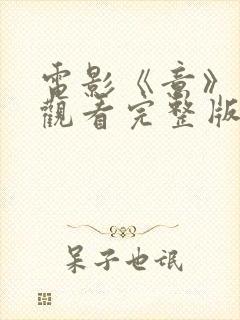 電影《音》
觀看完整版
呆子也氓